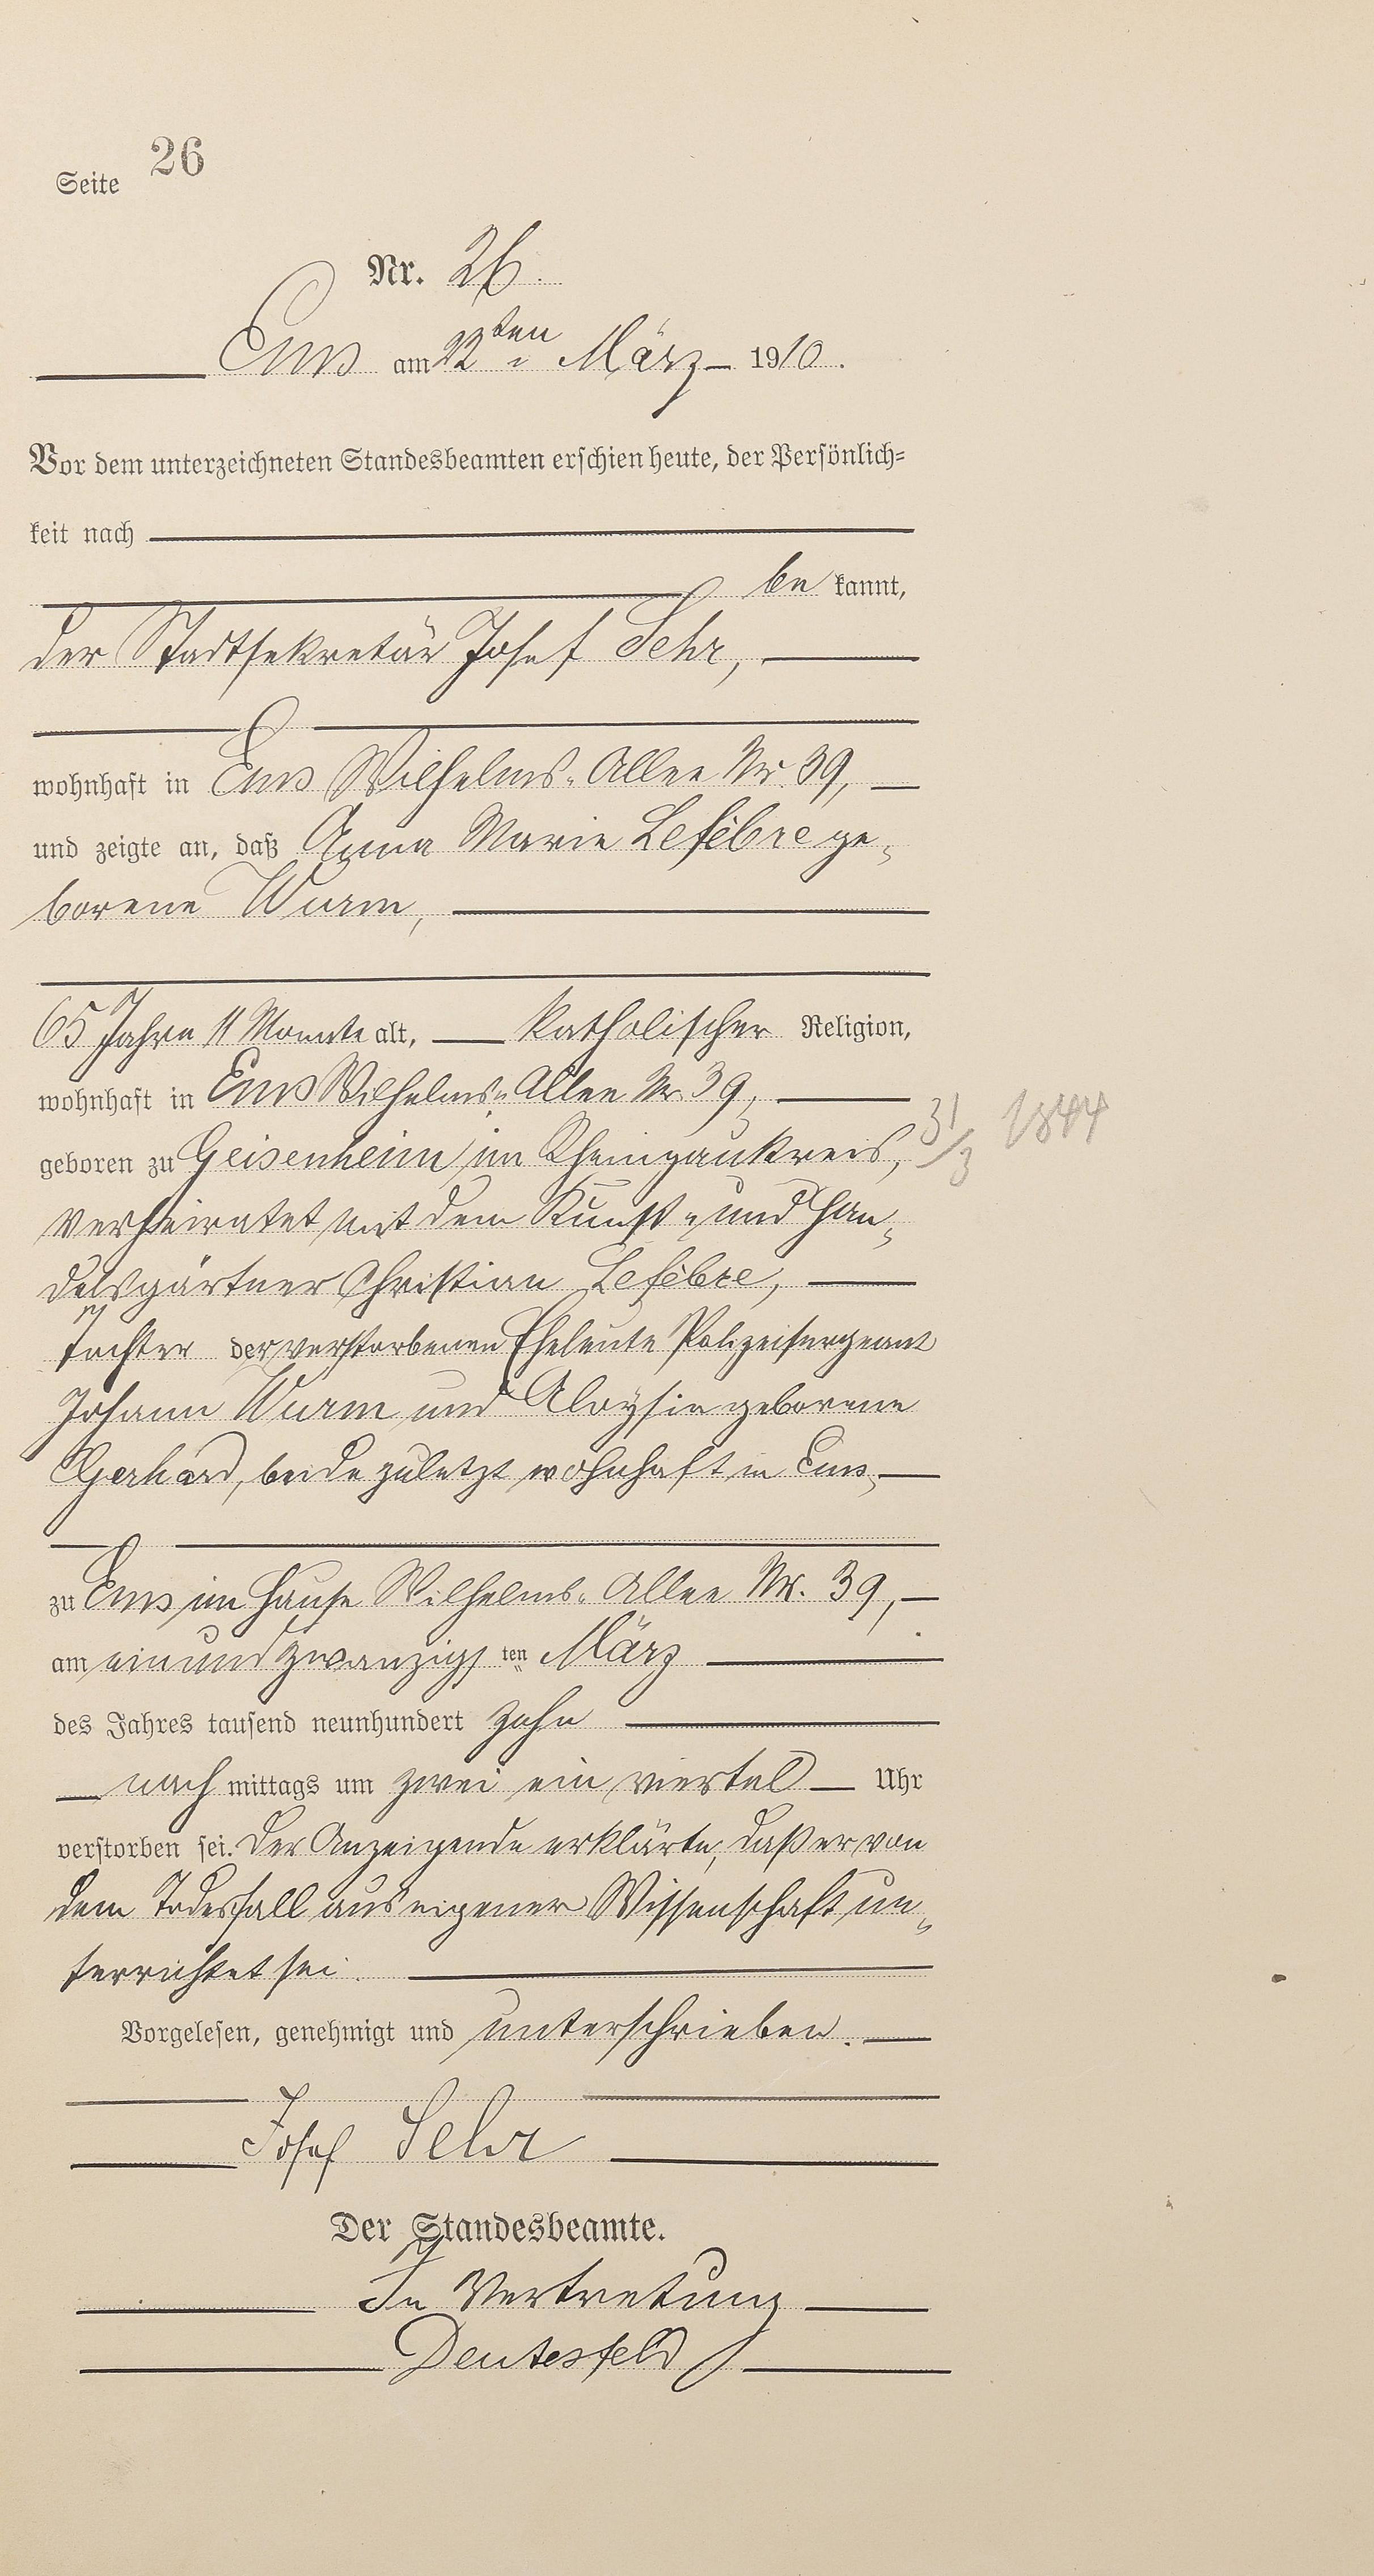 Seite 26
Nr. 26.
Ems am 22ten März 1910.
Vor dem unterzeichneten Standesbeamten erschien heute, der Persönlich-
keit nach
be kannt,
der Stadtsekretär Josef Sehr,
wohnhaft in Ems Wilhelms-Allee Nr. 39,
und zeigte an, daß Anna Marie Lefèbre ge-
borene Wurm,
65 Jahre 11 Monate alt, katholischer Religion,
wohnhaft in Ems Wilhelms-Allee Nr. 39,
geboren zu Geisenheim im Rheingaukreis, 31/3 1844
verheiratet mit dem Kunst- und Han-
delsgärtner Christian Lefèbre,
Tochter der verstorbenen Eheleute Polizeisergeant
Johann Wurm und Aloysia geborene
Gerhard, beide zuletzt wohnhaft in Ems,
zu Ems im Hause Wilhelms-Allee Nr. 39,
am einundzwanzigsten März
des Jahres tausend neunhundert zehn
nach mittags um zwei ein viertel Uhr
verstorben sei. Der Anzeigende erklärte, daß er von
dem Todesfall aus eigener Wissenschaft un-
terrichtet sei.
Vorgelesen, genehmigt und unterschrieben.
Josef Sehr
Der Standesbeamte.
In Vertretung
Deutesfeld